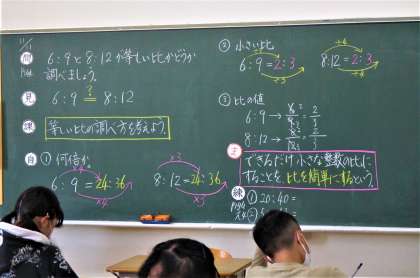 11/1
問 6:9と8:12が等しい比かどうか
P.86 調べましょう。
見 6:9 ?= 8:12
課 等しい比の調べ方を考えよう。
自 ① 何倍か
×4
6:9=24:36
×4
×3
8:12=24:36
×3
② 小さい比
÷3
6:9=2:3
÷3
÷4
8:12=2:3
÷4
③ 比の値
6:9 → 6/9=2/3
8:12 → 8/12=2/3
ま できるだけ小さな整数の比に
することを、比を簡単にするという。
練 ① 20:40=